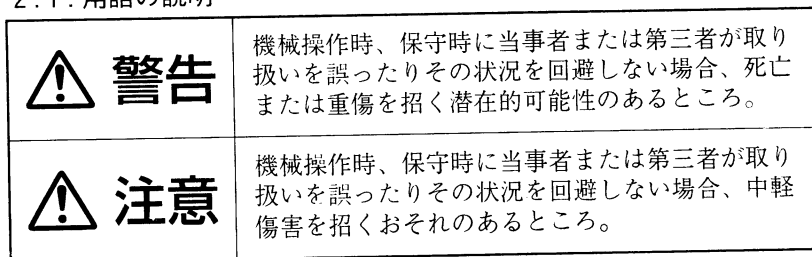 2.1.用語の説明
警告
機械操作時、保守時に当事者または第三者が取り
扱いを誤ったりその状況を回避しない場合、死亡
または重傷を招く潜在的可能性のあるところ。
注意
機械操作時、保守時に当事者または第三者が取り
扱いを誤ったりその状況を回避しない場合、中軽
傷害を招くおそれのあるところ。